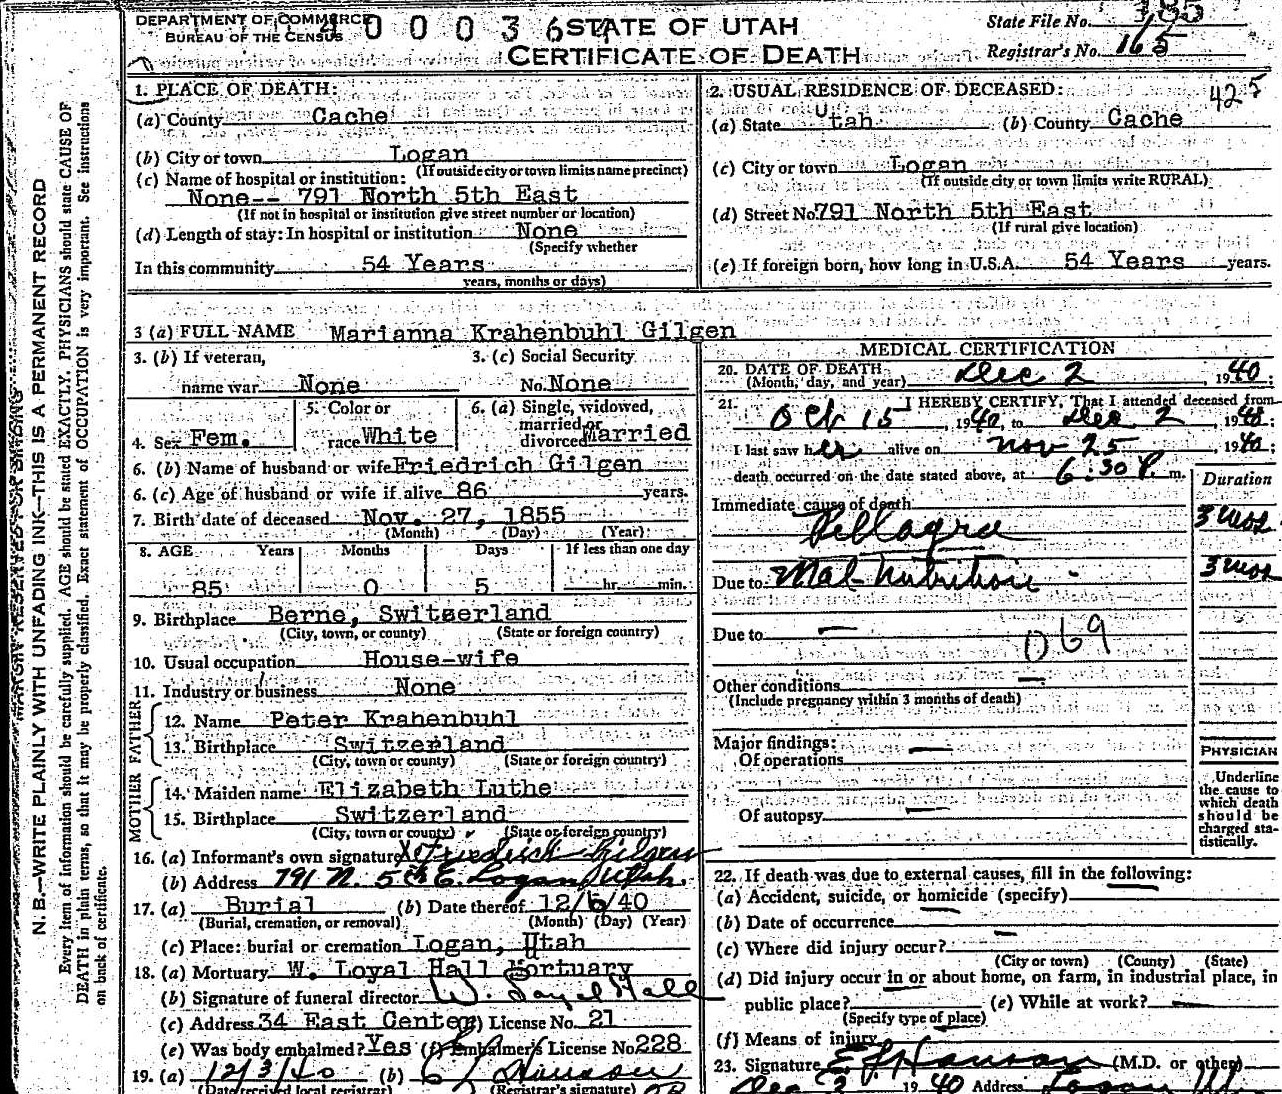 DEPARTMENT OF COMMERCE
BUREAU OF THE CENSUS
STATE OF UTAH
CERTIFICATE OF DEATH
State File No. 185
Registrar's No. 165
N. B.—WRITE PLAINLY WITH UNFADING INK—THIS IS A PERMANENT RECORD
Every item of information should be carefully supplied. AGE should be stated EXACTLY. PHYSICIANS should state CAUSE OF
DEATH in plain terms, so that it may be properly classified. Exact statement of OCCUPATION is very important. See instructions
on back of certificate.
1. PLACE OF DEATH:
(a) County Cache
(b) City or town Logan
(If outside city or town limits name precinct)
(c) Name of hospital or institution:
None-- 791 North 5th East
(If not in hospital or institution give street number or location)
(d) Length of stay: In hospital or institution None
(Specify whether
In this community 54 Years
years, months or days)
2. USUAL RESIDENCE OF DECEASED: 425
(a) State Utah (b) County Cache
(c) City or town Logan
(If outside city or town limits write RURAL)
(d) Street No. 791 North 5th East
(If rural give location)
(e) If foreign born, how long in U.S.A. 54 Years years.
3 (a) FULL NAME Marianna Krahenbuhl Gilgen
3. (b) If veteran, 3. (c) Social Security
name war None No. None
4. Sex Fem. 5. Color or race White 6. (a) Single, widowed, married or divorced Married
6. (b) Name of husband or wife Friedrich Gilgen
6. (c) Age of husband or wife if alive 86 years.
7. Birth date of deceased Nov. 27, 1855
(Month) (Day) (Year)
8. AGE Years Months Days If less than one day
85 0 5 hr. min.
9. Birthplace Berne, Switzerland
(City, town, or county) (State or foreign country)
10. Usual occupation House-wife
11. Industry or business None
FATHER
12. Name Peter Krahenbuhl
13. Birthplace Switzerland
(City, town or county) (State or foreign country)
MOTHER
14. Maiden name Elizabeth Luthe
15. Birthplace Switzerland
(City, town or county) (State or foreign country)
16. (a) Informant's own signature Friedrich Gilgen
(b) Address 791 N. 5th E. Logan, Utah.
17. (a) Burial (b) Date thereof 12/6/40
(Burial, cremation, or removal) (Month) (Day) (Year)
(c) Place: burial or cremation Logan, Utah
18. (a) Mortuary W. Loyal Hall Mortuary
(b) Signature of funeral director W. Loyal Hall
(c) Address 34 East Center (d) License No. 21
(e) Was body embalmed? Yes (f) Embalmer's License No. 228
19. (a) 12/3/40 (b)
(Date received local registrar) (Registrar's signature)
MEDICAL CERTIFICATION
20. DATE OF DEATH
(Month, day, and year) Dec 2, 1940;
21. I HEREBY CERTIFY, That I attended deceased from
Oct 15, 1940, to Dec 2, 1940;
I last saw her alive on Nov 25, 1940;
death occurred on the date stated above, at 6:30 P. m.
Duration
Immediate cause of death
Pellagra 3 mos
Due to Mal-nutrition - 3 mos
Due to —
069
Other conditions —
(Include pregnancy within 3 months of death)
Major findings:
Of operations —
Of autopsy —
PHYSICIAN
Underline
the cause to
which death
should be
charged sta-
tistically.
22. If death was due to external causes, fill in the following:
(a) Accident, suicide, or homicide (specify)
(b) Date of occurrence
(c) Where did injury occur?
(City or town) (County) (State)
(d) Did injury occur in or about home, on farm, in industrial place, in
public place? (e) While at work?
(Specify type of place)
(f) Means of injury
23. Signature E J Hanson (M.D. or other)
Dec 3 1940 Address Logan